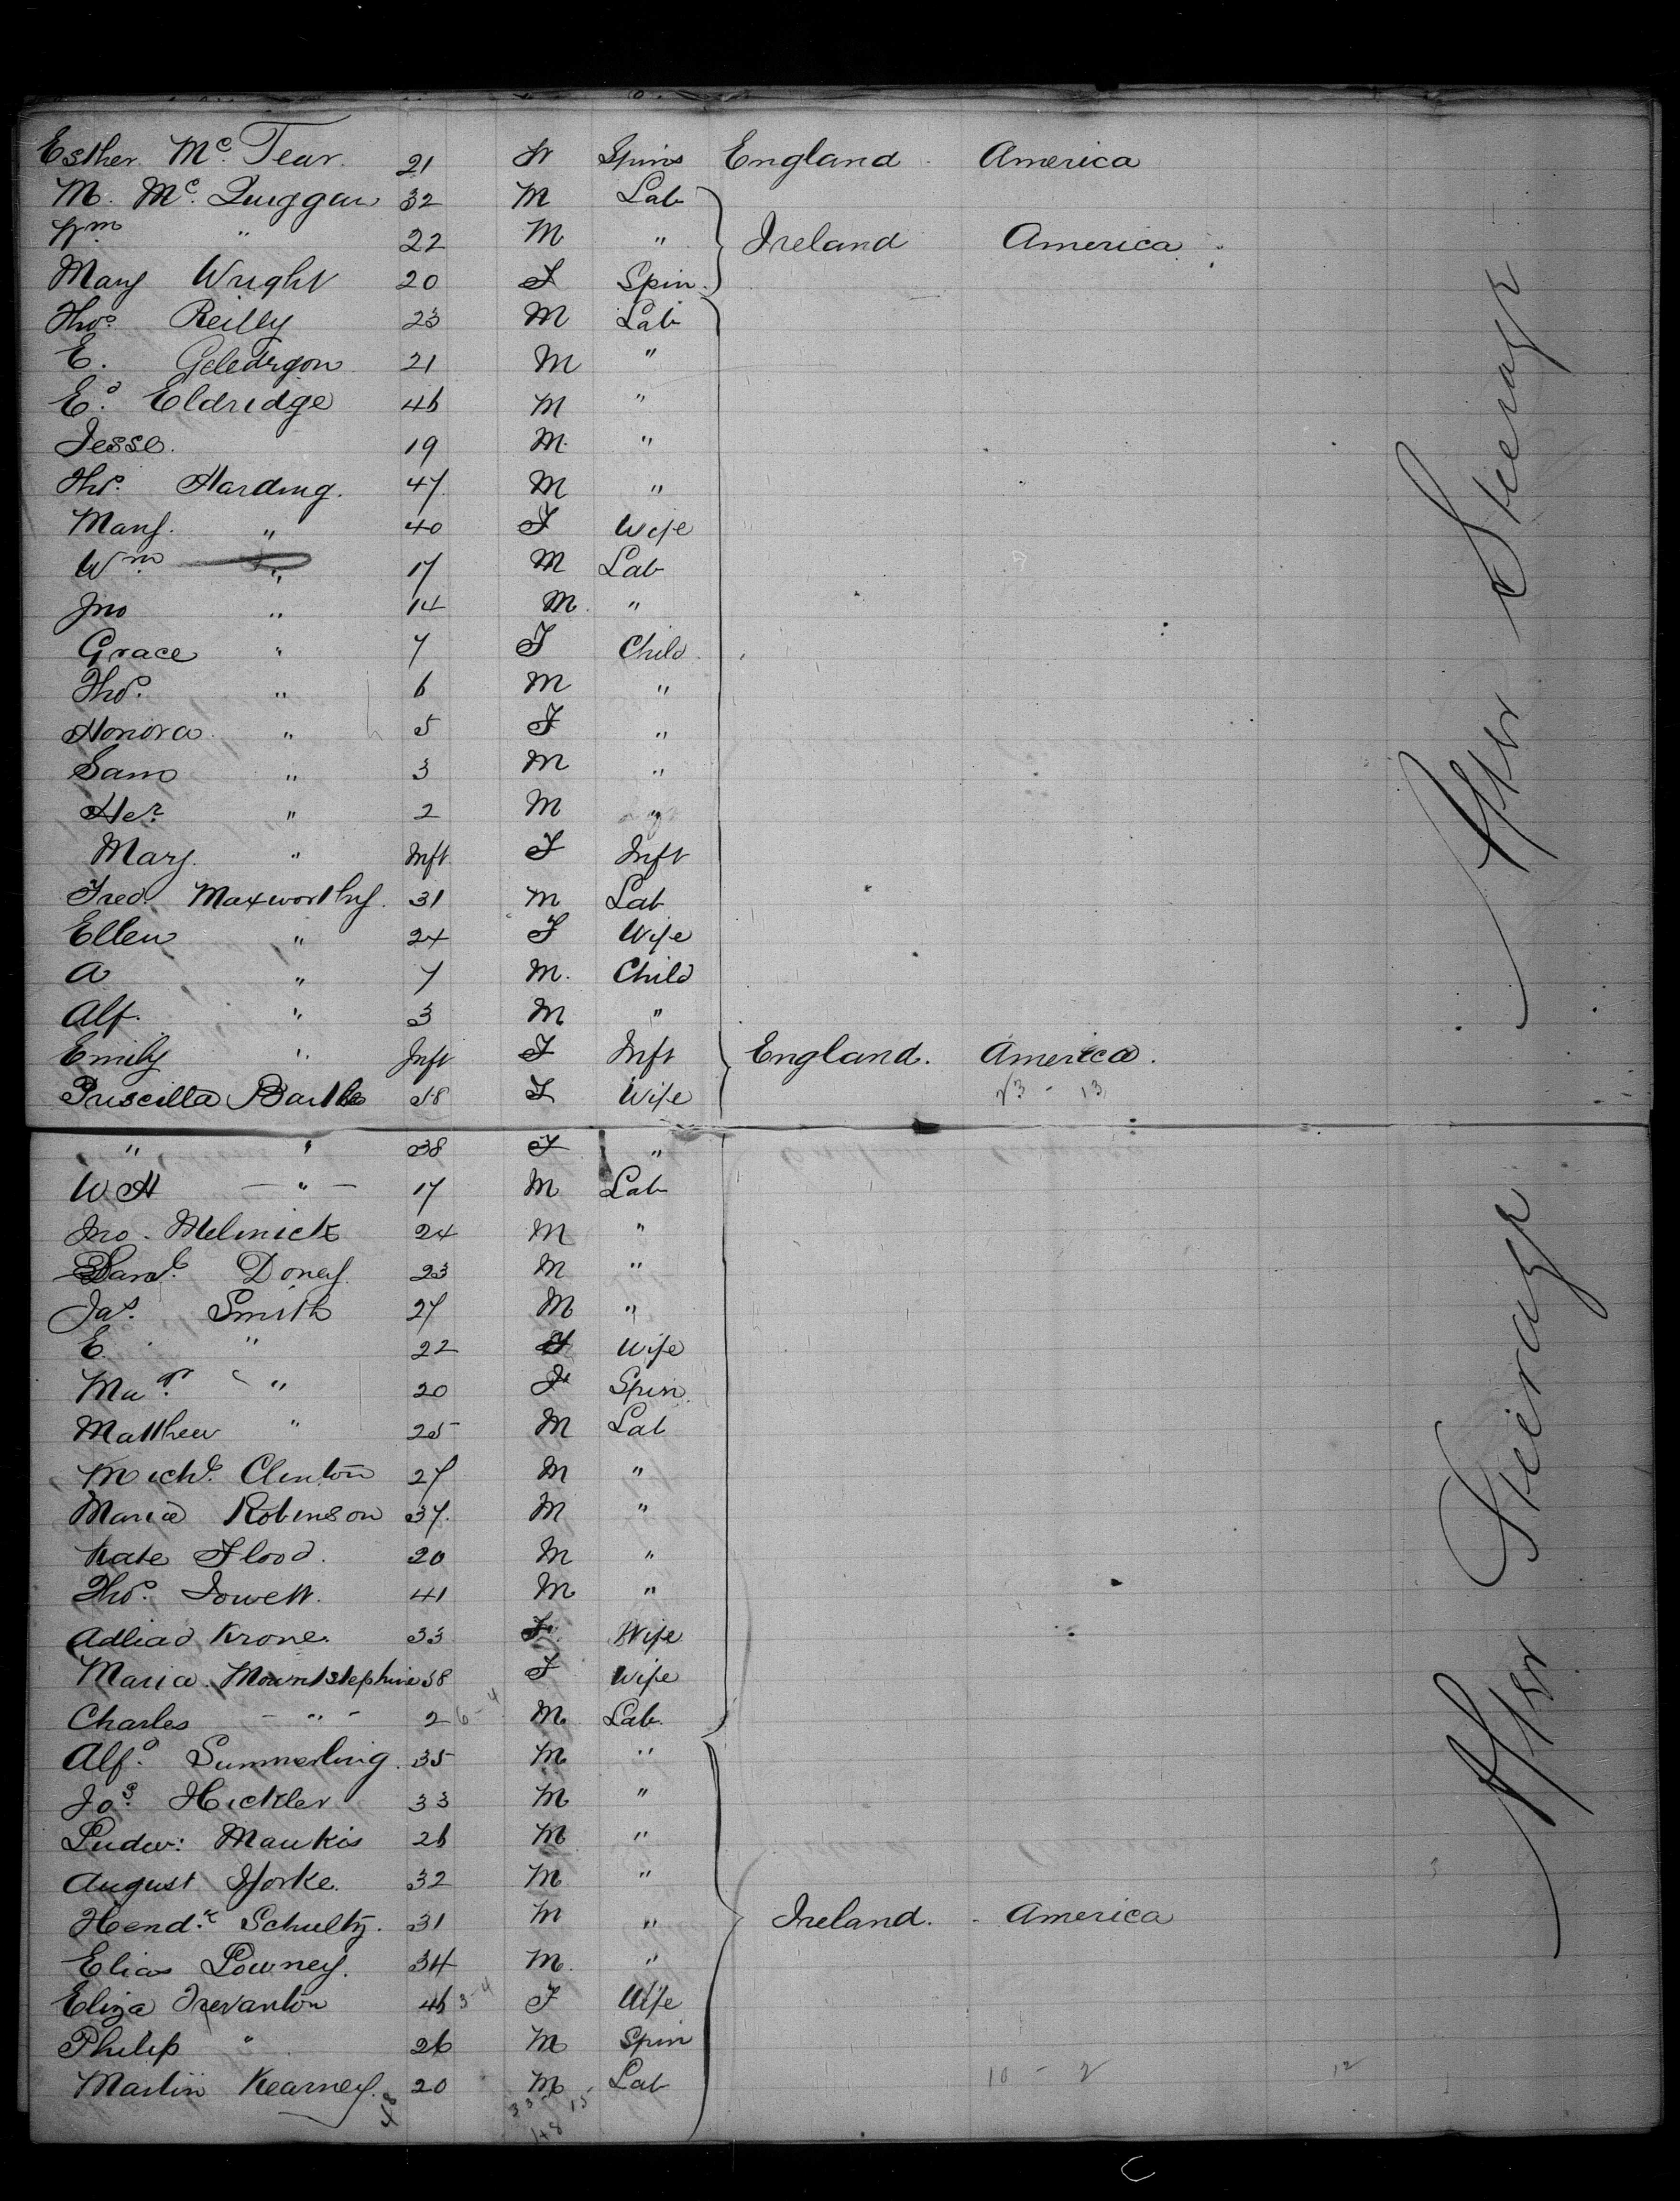 Esther Mc. Tear. 21 F Spins England America
M. Mc. Quiggan 32 M Lab
Wm " 22 M " Ireland America
Mary Wright 20 F Spin.
Thos. Reilly 23 M Lab
E. 21 M "
Ed. Eldridge 46 M "
Jesse. 19 M. "
Thos. Harding. 47. M "
Mary. " 40 F Wife
Wm " 17 M Lab
Jno " 14 M. "
Grace " 7 F Child
Thos. " 6 M "
Honora " 5 F "
Sam " 3 M "
" 2 M "
Mary. " Inft F Inft
Fred. Maxworthy. 31 M Lab
Ellen " 24 F Wife
A " 7 M. Child
Alf. " 3 M "
Emily " Inft F Inft England. America.
Priscilla 58 F Wife 13
" " 38 F "
W H — " — 17 M Lab
Jno. Melmick 24 M "
Saml. Doney. 23 M "
Jas. Smith 27 M "
E. " 22 F Wife
" 20 F Spin.
Matthew " 25 M Lab
Michl. Clinton 27 M "
Maria Robinson 37. M "
Kate Flood. 20 M "
Thos. Jowett. 41 M "
Adliad Krone. 33 F. Wife
Maria. Mountstephine 38 F Wife
Charles - " - 26-4 M Lab.
Alfd. Summerling. 35 M "
Jos. Hickler 33 M "
Ludw: Maukis 26 M "
August 32 M "
Hendk. Schultz. 31 M " Ireland. - America
Elias Downey. 34 M. "
Eliza Trevanton 46 3-4 F Wife
Philip " 26 M Spin
Martin Kearney. 20 M Lab 10 - 2 12
48 33 15
48
After Steerage
After Steerage